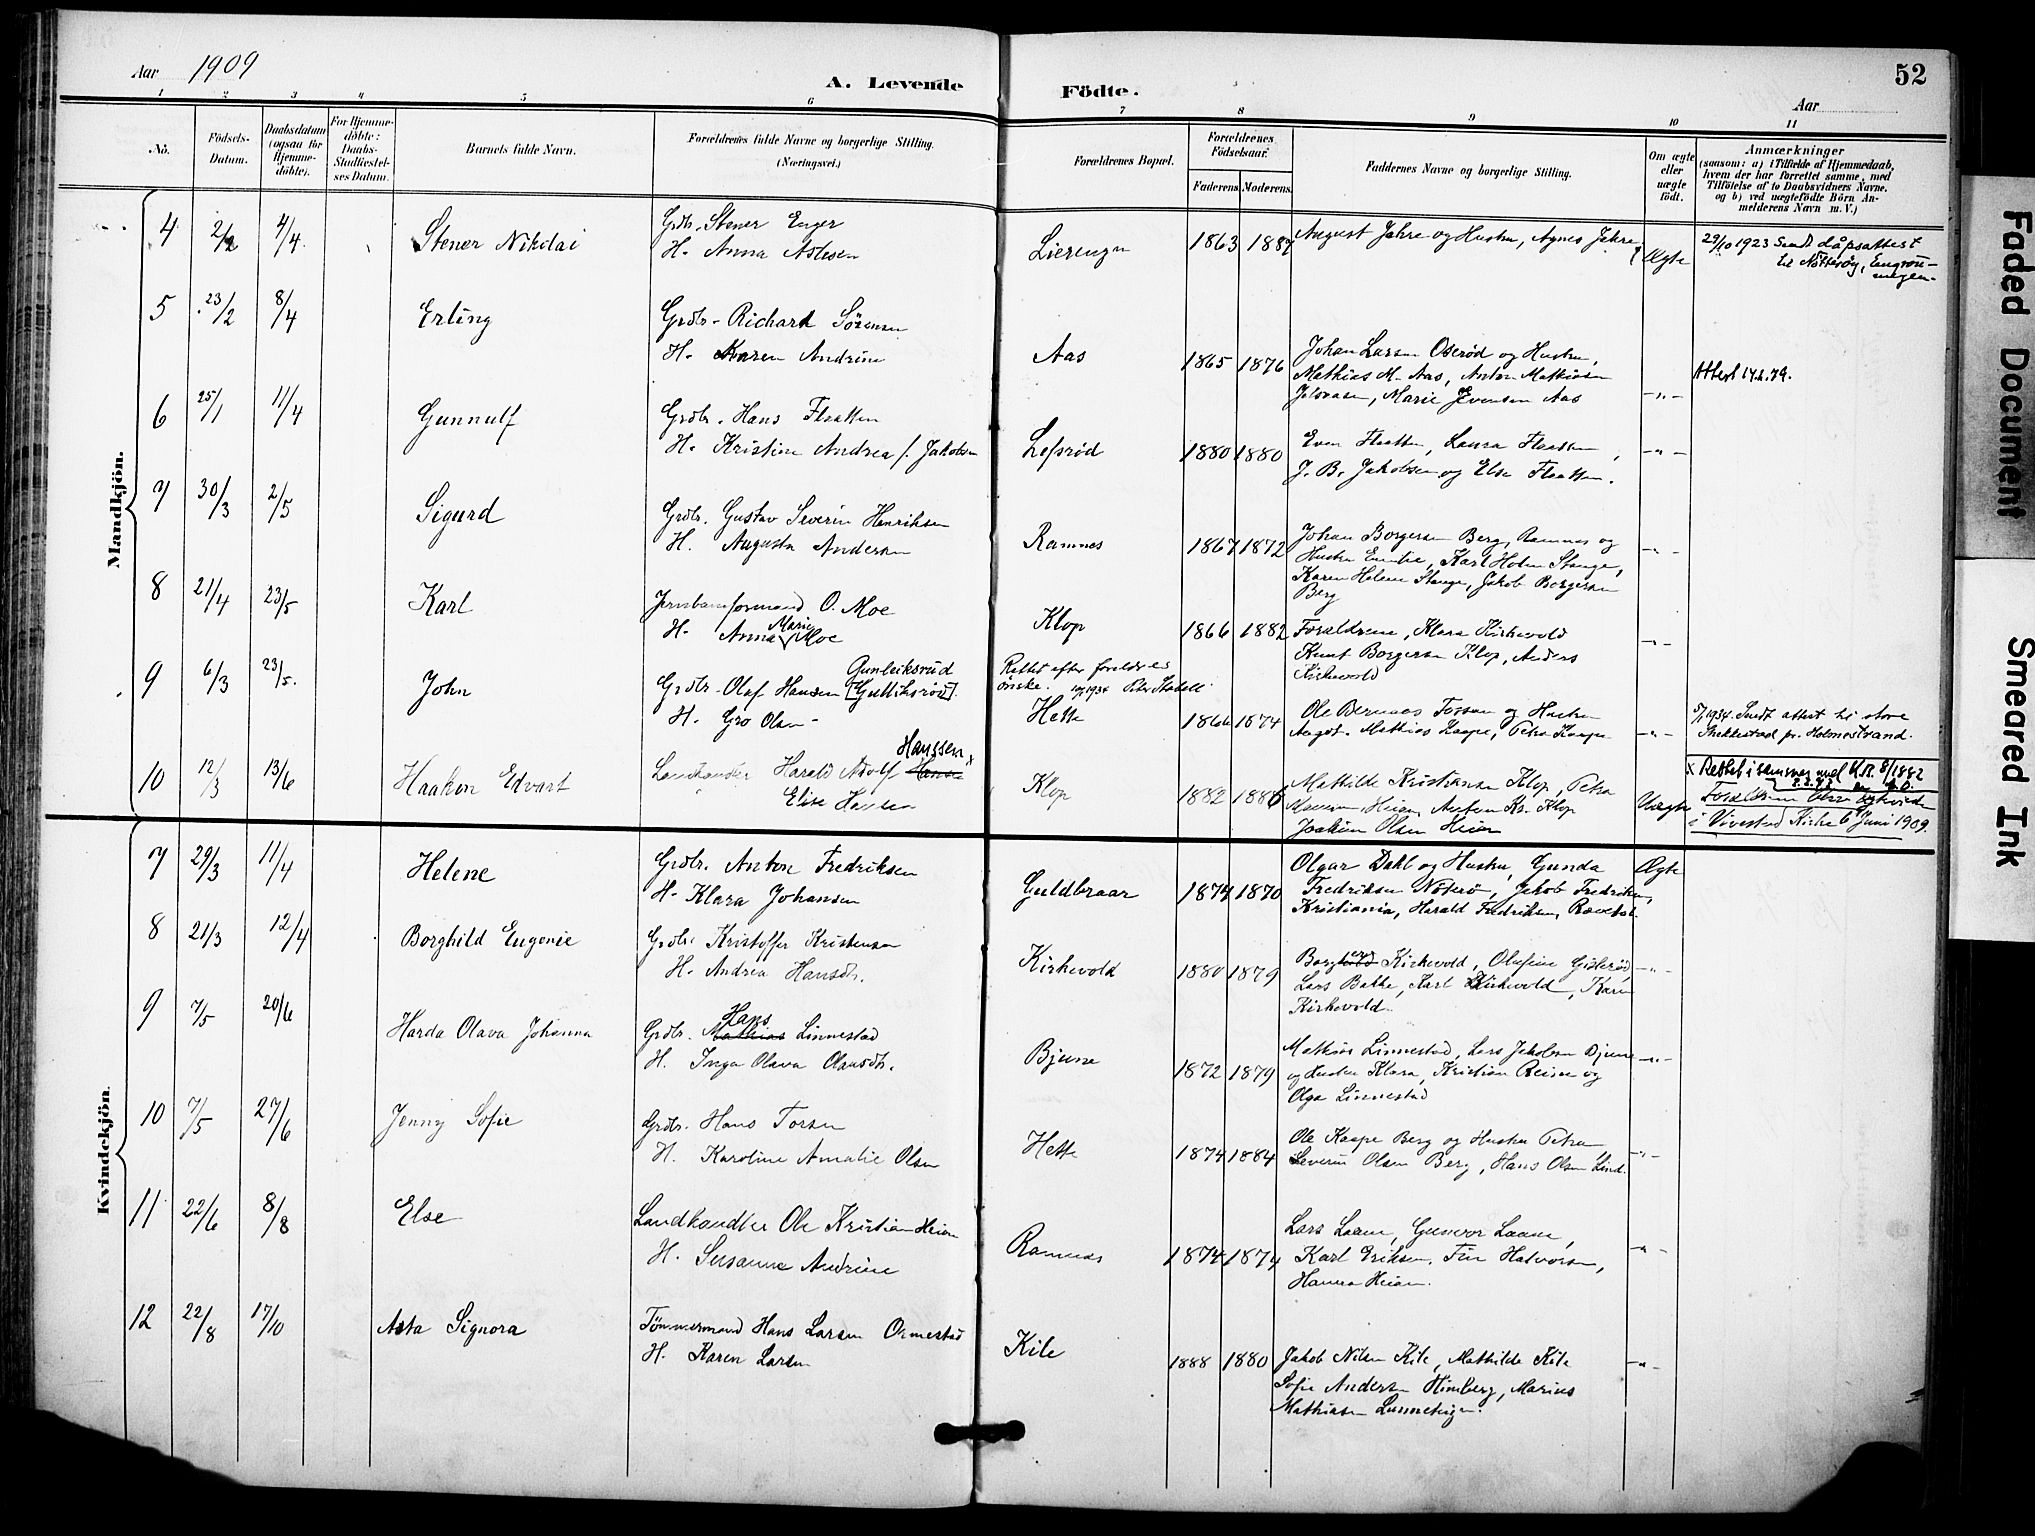 Aar 1909
A. Levende Födte.
52
Aar
1 2 3 4 5 6 7 8 9 10 11
No.
Födsels-Datum.
Daabsdatum (ogsaa for Hjemme-döbte).
For Hjemme-döbte: Daabs-Stadfæstel-ses Datum.
Barnets fulde Navn.
Forældrenes fulde Navne og borgerlige Stilling. (Næringsvei.)
Forældrenes Bopæl.
Forældrenes Födselsaar.
Faderens. Moderens.
Faddernes Navne og borgerlige Stilling.
Om ægte eller uægte födt.
Anmærkninger
(saasom: a) i Tilfælde af Hjemmedaab, hvem der har forrettet samme, med Tilföielse af to Daabsvidners Navne, og b) ved uægtefödte Börn An-melderens Navn m. V.)
Mandkjön.
4 2/2 4/4 Stener Nikolai
Grdbr. Stener Enger
H. Anna Astesen
Lierengn 1863 1887
August Jahre og Hustru, Agnes Jahre
Ægte
29/10 1923 Sendt dåpsattest
til Nötteröy,
5 23/2 8/4 Erling
Grdbr. Richard Sörensen
H. Karen Andrine
Aas 1865 1876
Johan Larsen Oseröd og Hustru,
Mathias M. Aas, Anton Mathisen
Marie Evensen Aas
-"-
Attest 17.2.79.
6 25/1 11/4 Gunnulf
Grdbr. Hans Flaatten
H. Kristine Andrea f. Jakobsen
Lefsröd 1880 1880
Even Flaatten, Laura Flaatten,
J. B. Jakobsen og Else Flaatten.
-"-
7 30/3 2/5 Sigurd
Grdbr. Gustav Severin Henriksen
H. Augusta Andersen
Ramnes 1867 1872
Johan Borgersen Berg, Ramnes og
Hustru Emilie, Karl Holm Stange,
Karen Helene Stange, Jakob Borgersen
Berg
-"-
8 21/4 23/5 Karl
Jernbaneformand O. Moe
H. Anna Marie Moe
Klop 1866 1882
Forældrene, Klara Kirkevold
Knut Borgersen Klop, Anders
Kirkevold
-"-
9 6/3 23/5. John
Gunleiksrud
Grdbr. Olaf Hansen [Gulliksröd].
H. Gro Olsen
Rettet efter foreldrenes
önske. 1934
Hette 1866 1874
Ole Bernaas Torsen og Hustru
Mathias Kaape, Petra Kaape
-"-
5/1 1934. Sendt attest til store
pr. Holmestrand.
10 12/3 13/6 Haakon Edvart
Hanssen x
Landhandler Harald Adolf Hansen
Elise Hansen
Klop 1882 1886
Mathilde Kristiansen Klop, Petra
Heian, Kr. Klop
Joakim Olsen Heian
Uægte
x Rettet i samsvar med K.R. 8/1882
Forældrene
i Vivestad Kirke 6 Juni 1909.
Kvindekjön.
7 29/3 11/4 Helene
Grdbr. Anton Fredriksen
H. Klara Johansen
Guldbraar 1874 1870
Olgar Dahl og Hustru, Gunda
Fredriksen Nöterö, Jakob Fredriksen,
Kristiania, Harald Fredriksen,
Ægte
8 21/3 12/4 Borghild Eugenie
Grdbr. Kristoffer Kristensen
H. Andrea Hansdtr.
Kirkevold 1880 1879
Kirkevold, Olufine Gisleröd,
Lars Bakke, Karl Kirkevold, Karen
Kirkevold.
-"-
9 7/5 20/6 Harda Olava Johanna
Hans
Grdbr. Mathias Linnestad
H. Inga Olava Olausdtr.
Bjune 1872 1879
Mathias Linnestad, Lars Jakobsen Bjune
og Hustru Klara, Kristian Reine og
Olga Linnestad
-"-
10 7/5 27/6 Jenny Sofie
Grdbr. Hans Torsen
H. Karoline Amalie Olsen
Hette 1874 1884
Ole Kaape Berg og Hustru Petra
Severin Olsen Berg, Hans Olsen Lind.
-"-
11 22/6 8/8 Else
Landhandler Ole Kristian Heian
H. Susanne Andrine
Ramnes 1874 1874
Lars Laane, Gunvor Laane,
Karl Eriksen, Halvorsen,
Hanna Heian.
-"-
12 22/8 17/10 Asta Signora
Tömmermand Hans Larsen Ormestad
H. Karen Larsen
Kile 1888 1880
Jakob Nilsen Kile, Mathilde Kile
Sofie Andersen Himberg, Marius
Mathisen
-"-
Faded Document
Smeared Ink